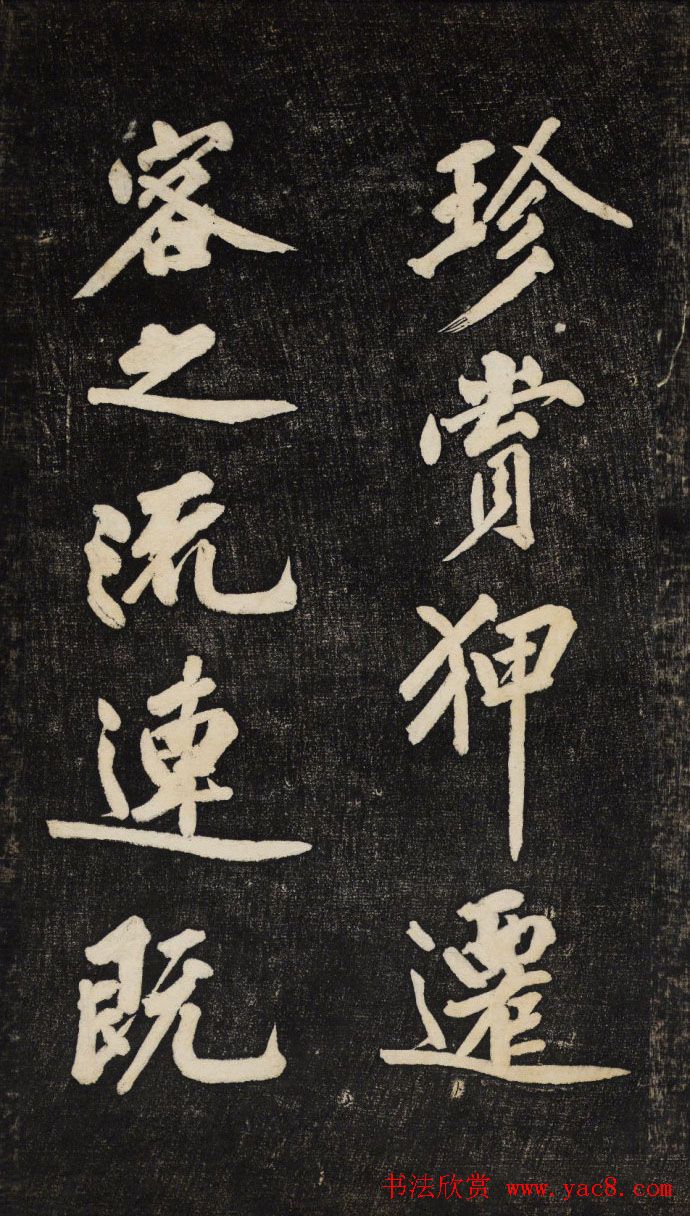 珍賞狎遷
客之流連既
书法欣赏 www.yac8.com